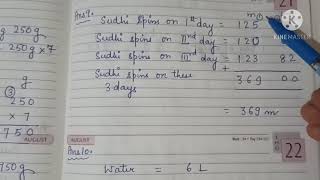 250g
250g × 7
g
③
250
× 7
750
750g
AUGUST
Ans 9. Sudhi spins on Ist day = 125 m
Sudhi spins on IInd day = 120
Sudhi spins on IIIrd day = 123 82
+
Sudhi spins on these 369 00
3 days
= 369 m
KINEMASTER
21
AUGUST
22
Ans 10.
Water = 6 L